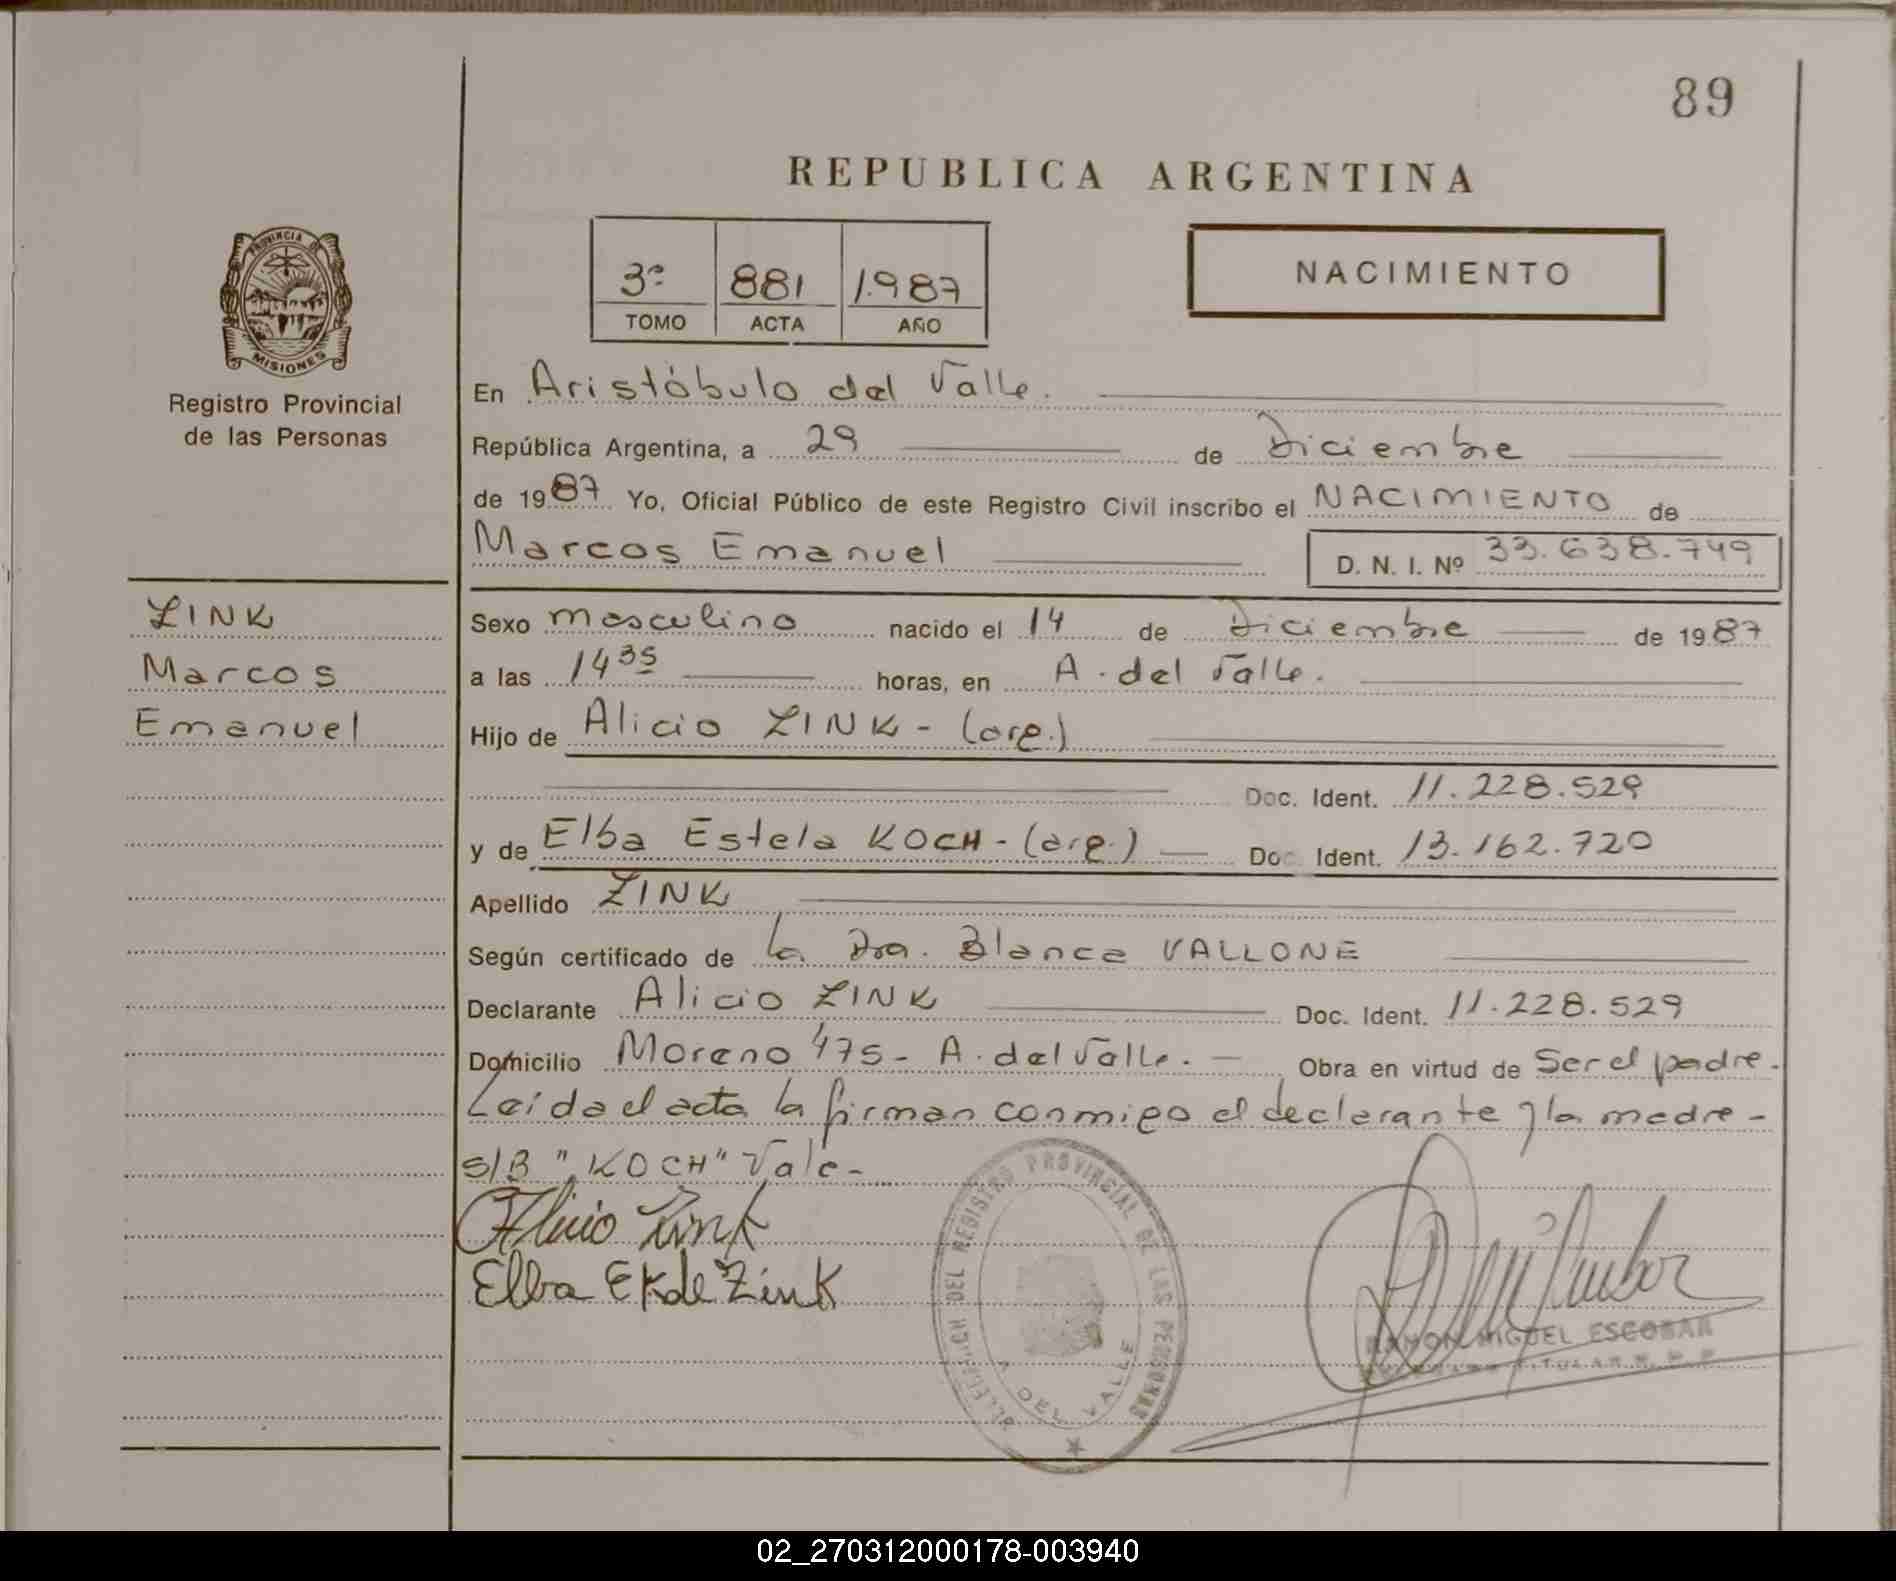 89
REPUBLICA ARGENTINA
3º 881 1.987
TOMO ACTA AÑO
NACIMIENTO
PROVINCIA DE
MISIONES
Registro Provincial
de las Personas
En Aristóbulo del Valle.
República Argentina, a 29 de Diciembre
de 1987 Yo, Oficial Público de este Registro Civil inscribo el NACIMIENTO de
Marcos Emanuel D. N. I. Nº 33.638.749
ZINK
Marcos
Emanuel
Sexo masculino nacido el 14 de Diciembre de 1987
a las 14 35 horas, en A. del Valle.
Hijo de Alicio ZINK - (arg.)
Doc. Ident. 11.228.529
y de Elba Estela KOCH - (arg.) Doc. Ident. 13.162.720
Apellido ZINK
Según certificado de la Dra. Blanca VALLONE
Declarante Alicio ZINK Doc. Ident. 11.228.529
Domicilio Moreno 475 - A. del Valle. - Obra en virtud de Ser el padre.
Leída el acta la firman conmigo el declarante y la madre -
S/B "KOCH" Vale -
Alicio Zink
Elba EK de Zink
DEL REGISTRO PROVINCIAL DE LAS PERSONAS
A. DEL VALLE
RAMON MIGUEL ESCOBAR
TITULAR R. P. P.
02_270312000178-003940